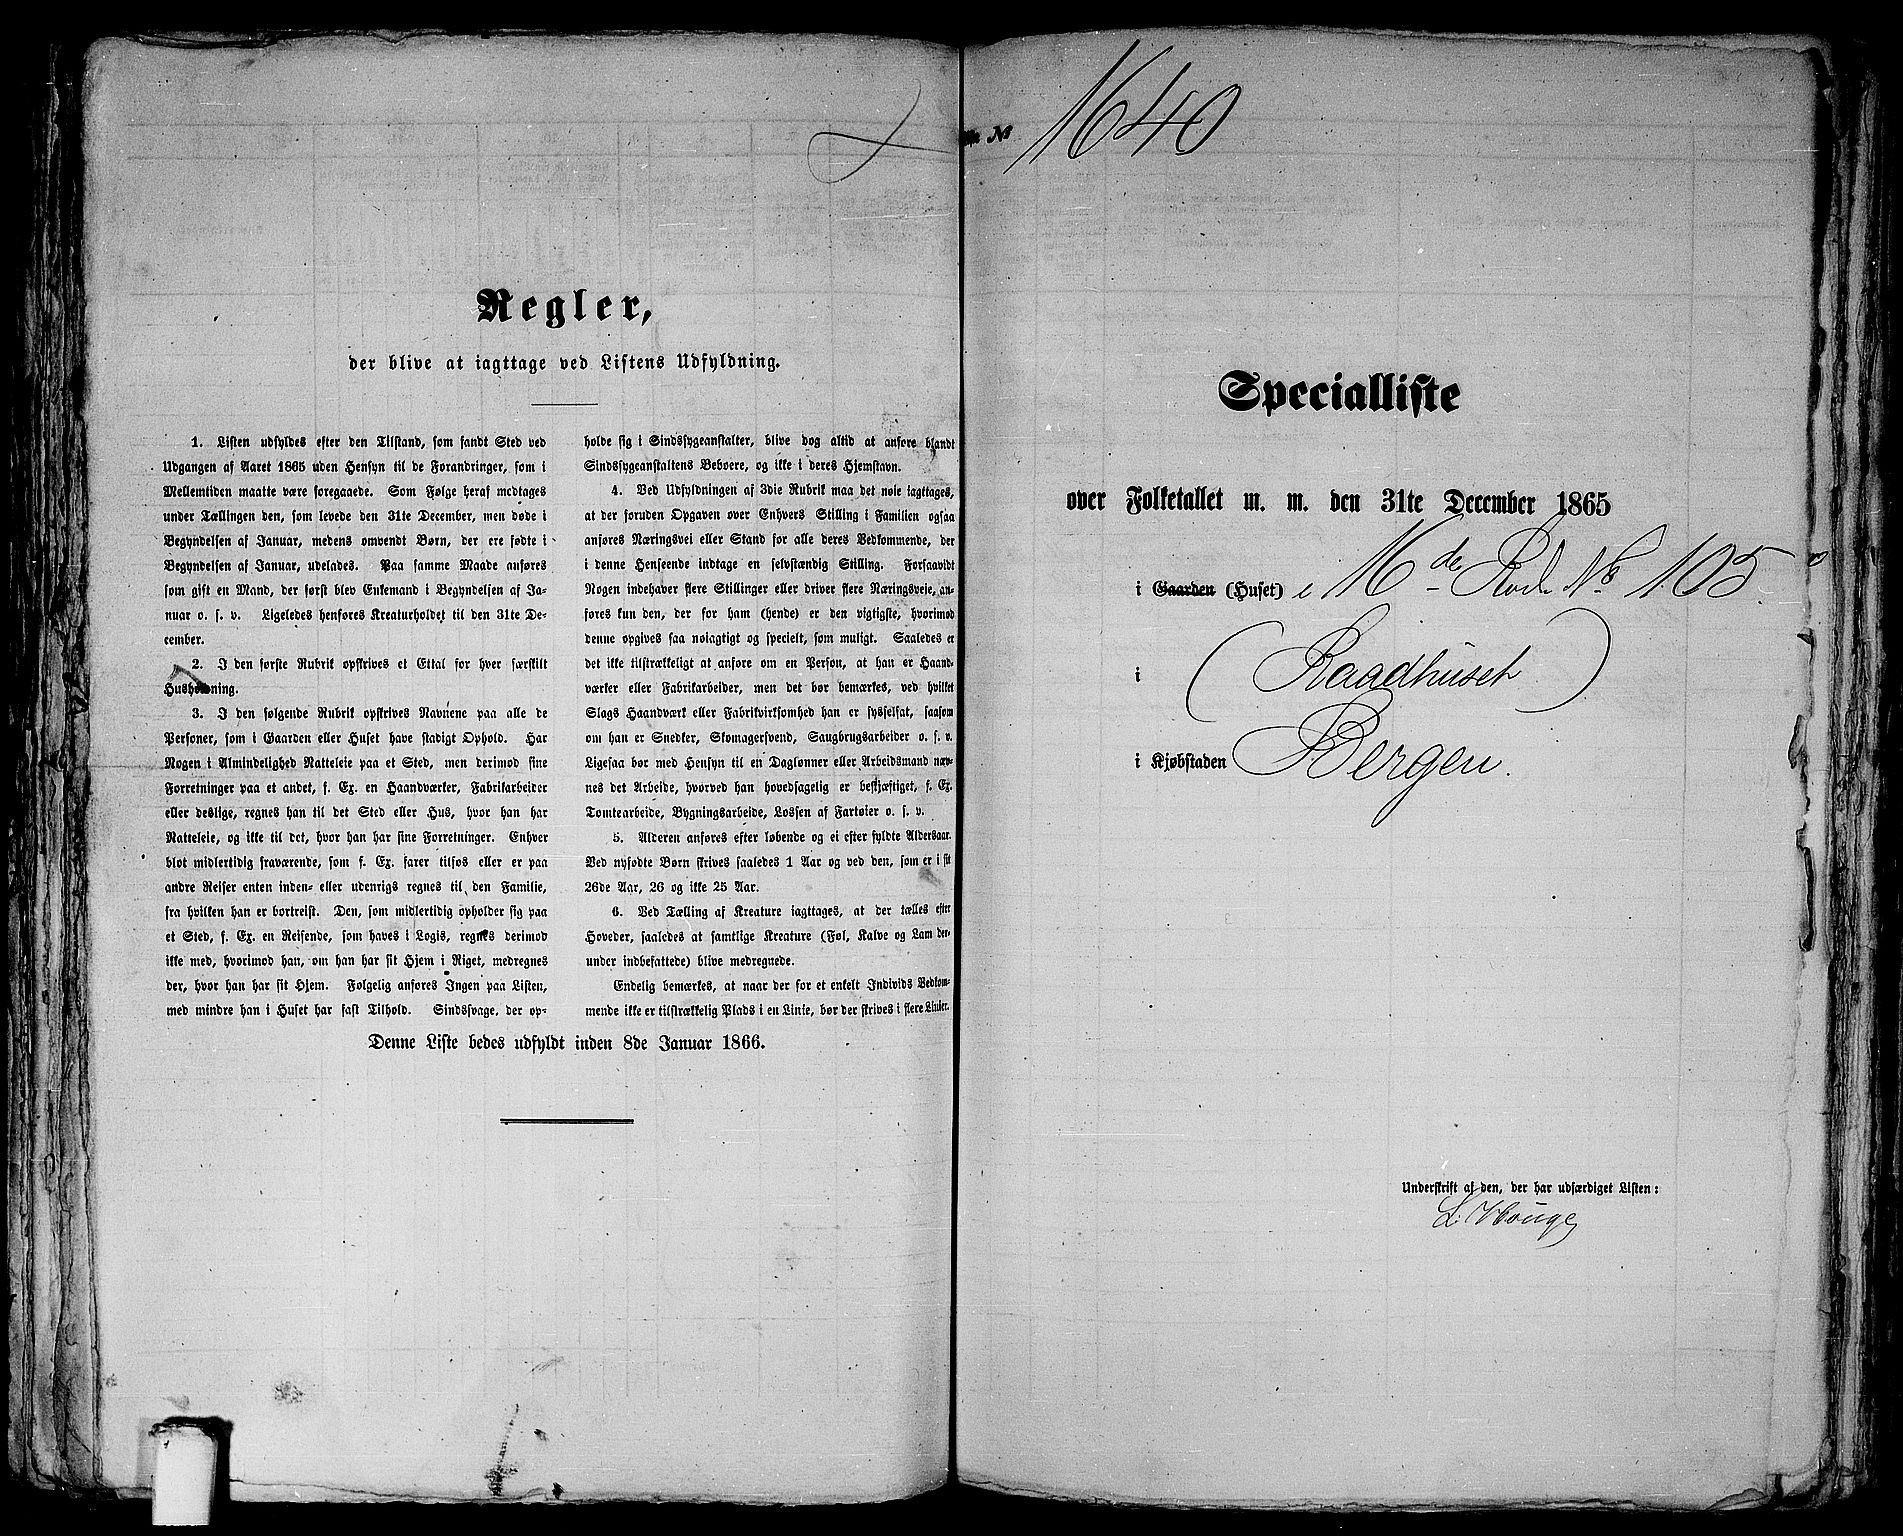 Regler,
der blive at iagttage ved Listens Udfyldning.
1. Listen udfyldes efter den Tilstand, som fandt Sted ved
Udgangen af Aaret 1865 uden Hensyn til de Forandringer, som i
Mellemtiden maatte være foregaaede. Som Følge heraf medtages
under Tællingen den, som levede den 31te December, men døde i
Begyndelsen af Januar, medens omvendt Børn, der ere fødte i
Begyndelsen af Januar, udelades. Paa samme Maade anføres
som gift en Mand, der først blev Enkemand i Begyndelsen af Ja-
nuar o. s. v. Ligeledes henføres Kreaturholdet til den 31te De-
cember.
2. I den første Rubrik opskrives et Ettal for hver særskilt
Husholdning.
3. I den følgende Rubrik opskrives Navnene paa alle de
Personer, som i Gaarden eller Huset have stadigt Ophold. Har
Nogen i Almindelighed Natteleie paa et Sted, men derimod sine
Forretninger paa et andet, s. Ex. en Haandværker, Fabrikarbeider
eller deslige, regnes han til det Sted eller Hus, hvor han har
Natteleie, og ikke til det, hvor han har sine Forretninger. Enhver
blot midlertidig fraværende, som f. Ex. farer tilsøs eller er paa
andre Reiser enten inden- eller udenrigs regnes til den Familie,
fra hvilken han er bortreist. Den, som midlertidig opholder sig paa
et Sted, s. Ex. en Reisende, som haves i Logis, regnes derimod
ikke med, hvorimod han, om han har sit Hjem i Riget, medregnes
der, hvor han har sit Hjem. Følgelig anføres Ingen paa Listen,
med mindre han i Huset har fast Tilhold. Sindssvage, der op-
holde sig i Sindssygeanstalter, blive dog altid at anføre blandt
Sindssygeanstaltens Beboere, og ikke i deres Hjemstavn.
4. Ved Udfyldningen af 3die Rubrik maa det nøie iagttages,
at der foruden Opgaven over Enhvers Stilling i Familien ogsaa
anføres Næringsvei eller Stand for alle deres Vedkommende, der
i denne Henseende indtage en selvstændig Stilling. Forsaavidt
Nogen indehaver flere Stillinger eller driver flere Næringsveie, an-
føres kun den, der for ham (hende) er den vigtigste, hvorimod
denne opgives saa nøiagtigt og specielt, som muligt. Saaledes er
det ikke tilstrækkeligt at anføre om en Person, at han er Haand-
værker eller Fabrikarbeider, men det bør bemærkes, ved hvilket
Slags Haandværk eller Fabrikvirksomhed han er sysselsat, saasom
om han er Snedker, Skomagersvend, Saugbrugsarbeider o. s. v.
Ligesaa bør med Hensyn til en Daglønner eller Arbeidsmand næv-
nes det Arbeide, hvorved han hovedsagelig er beskjæftiget, s. Ex.
Tomtearbeide, Bygningsarbeide, Lossen af Fartøier o. s. v.
5. Alderen anføres efter løbende og ei efter fyldte Aldersaar.
Ved nyfødte Børn skrives saaledes 1 Aar og ved den, som er i sit
26de Aar, 26 og ikke 25 Aar.
6. Ved Tælling af Kreature iagttages, at der tælles efter
Hoveder, saaledes at samtlige Kreature (Føl, Kalve og Lam der-
under indbefattede) blive medregnede.
Endelig bemærkes, at naar der for et enkelt Individs Vedkom-
mende ikke er tilstrækkelig Plads i en Linie, bør der skrives i flere Linier.
Denne Liste bedes udfyldt inden 8de Januar 1866.
№ 1640
Specialliste
over Folketallet m. m. den 31te December 1865
i Gaarden (Huset) i 16de Rode No 105.
i (Raadhuset)
i Kjøbstaden Bergen.
Underskrift af den, der har udfærdiget Listen: